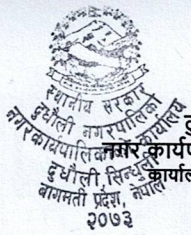 स्थानीय सरकार
दुधौली नगरपालिका
नगरकार्यपालिकाको कार्यालय
दुधौली, सिन्धुली
बागमती प्रदेश, नेपाल
२०७३
नगर कार्यप
कार्याल